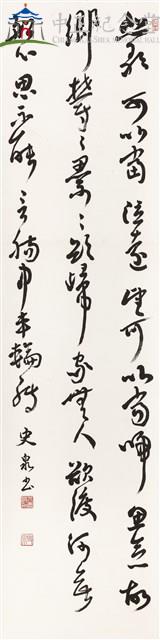 悲歌可以當泣遠望可以當歸思念故
鄉鬱々累々欲歸家無人欲渡河無
船心思不能言腸中車輪轉 史泉書